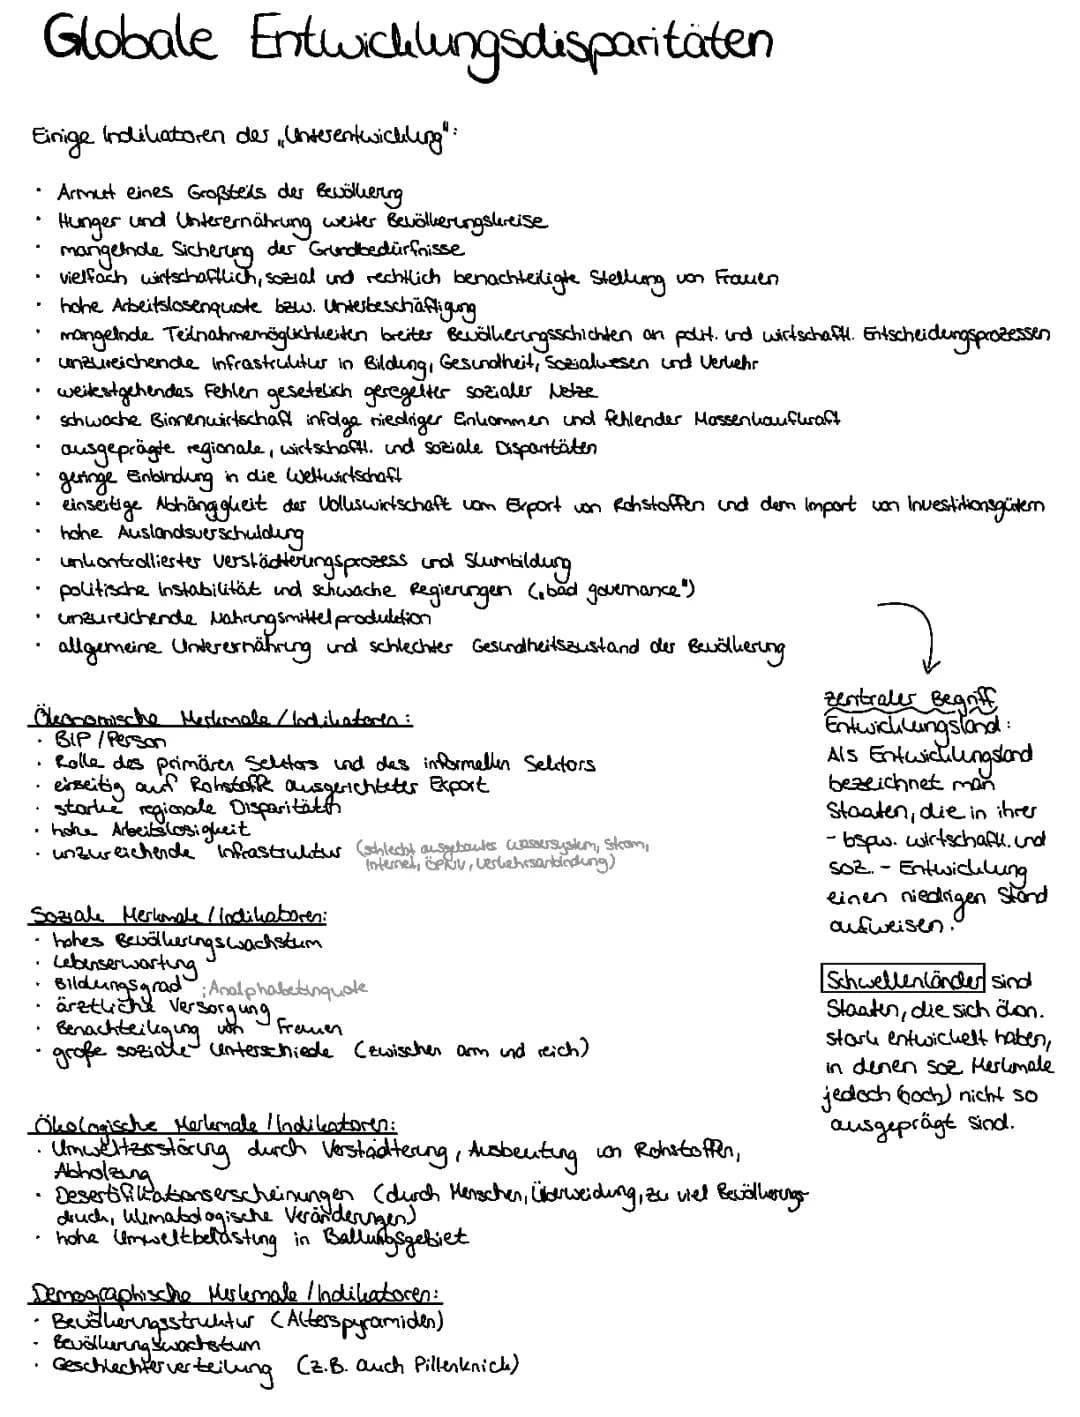 Globale Entwicklungsdisparitäten
Einige Indikatoren der „Unterentwicklung":
• Armut eines Großteils der Bevölkerung
• Hunger und Unterernährung weiter Bevölkerungskreise
• mangelnde Sicherung der Grundbedürfnisse
• vielfach wirtschaftlich, sozial und rechtlich benachteiligte Stellung von Frauen
• hohe Arbeitslosenquote bzw. Unterbeschäftigung
• mangelnde Teilnahmemöglichkeiten breiter Bevölkerungsschichten an polit. und wirtschaftl. Entscheidungsprozessen
• unzureichende Infrastruktur in Bildung, Gesundheit, Sozialwesen und Verkehr
• weitestgehendes Fehlen gesetzlich geregelter sozialer Netze
• schwache Binnenwirtschaft infolge niedriger Einkommen und fehlender Massenkaufkraft
• ausgeprägte regionale, wirtschaftl. und soziale Disparitäten
• geringe Einbindung in die Weltwirtschaft
• einseitige Abhängigkeit der Volkswirtschaft vom Export von Rohstoffen und dem Import von Investitionsgütern
• hohe Auslandsverschuldung
• unkontrollierter Verstädterungsprozess und Slumbildung
• politische Instabilität und schwache Regierungen („bad governance")
• unzureichende Nahrungsmittelproduktion
• allgemeine Unterernährung und schlechter Gesundheitszustand der Bevölkerung
Ökonomische Merkmale / Indikatoren:
• BIP / Person
• Rolle des primären Sektors und des informellen Sektors
• einseitig auf Rohstoffe ausgerichteter Export
• starke regionale Disparitäten
• hohe Arbeitslosigkeit
• unzureichende Infrastruktur (schlecht ausgebautes Wassersystem, Strom,
Internet, ÖPNV, Verkehrsanbindung)
Soziale Merkmale / Indikatoren:
• hohes Bevölkerungswachstum
• Lebenserwartung
• Bildungsgrad ; Analphabetenquote
• ärztliche Versorgung
• Benachteiligung von Frauen
• große soziale Unterschiede (zwischen arm und reich)
Ökologische Merkmale / Indikatoren:
• Umweltzerstörung durch Verstädterung, Ausbeutung von Rohstoffen,
Abholzung
• Desertifikationserscheinungen (durch Menschen, Überweidung, zu viel Bevölkerungs-
druck, klimatologische Veränderungen)
• hohe Umweltbelastung in Ballungsgebiet
Demographische Merkmale / Indikatoren:
• Bevölkerungsstruktur (Alterspyramiden)
• Bevölkerungswachstum
• Geschlechterverteilung (z.B. auch Pillenknick)
zentraler Begriff
Entwicklungsland:
Als Entwicklungsland
bezeichnet man
Staaten, die in ihrer
- bspw. wirtschaftl. und
soz. - Entwicklung
einen niedrigen Stand
aufweisen.
Schwellenländer sind
Staaten, die sich ökon.
stark entwickelt haben,
in denen soz. Merkmale
jedoch (noch) nicht so
ausgeprägt sind.